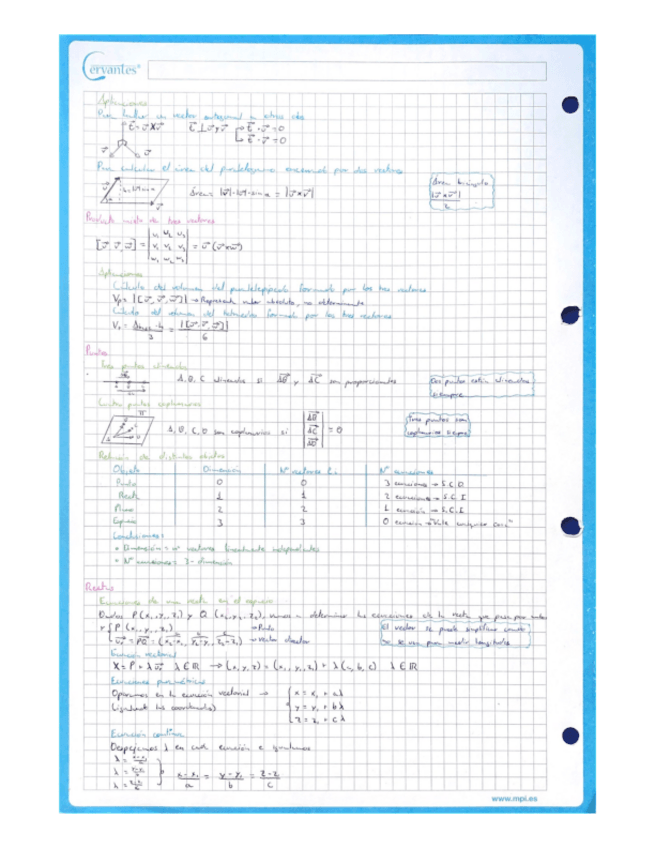 Cervantes®
Aplicaciones
Para hallar un vector ortogonal a otros dos
Para calcular el área del paralelogramo encerrado por dos vectores
Área = |u|·|v|·sin α = |u×v|
Área triángulo
|u×v|
2
Producto mixto de tres vectores
[u, v, w] =
u₁ u₂ u₃
v₁ v₂ v₃
w₁ w₂ w₃
= u (v×w)
Aplicaciones
Cálculo del volumen del paralelepípedo formado por los tres vectores
Vp = |[u, v, w]| → Representa valor absoluto, no determinante
Cálculo del volumen del tetraedro formado por los tres vectores
|[u, v, w]|
6
Puntos
Tres puntos alineados
A, B, C alineados si AB y AC son proporcionales
Dos puntos están alineados
siempre
Cuatro puntos coplanarios
π
A, B, C, D son coplanarios si
AB
AC
AD
= 0
Tres puntos son
coplanarios siempre
Relación de distintos objetos
Objeto Dimensión Nº vectores L.I. Nº ecuaciones
Punto 0 0 3 ecuaciones → S.C.D.
Recta 1 1 2 ecuaciones → S.C.I.
Plano 2 2 1 ecuación → S.C.I.
Espacio 3 3 0 ecuación → Vale cualquier
Conclusiones:
• Dimensión = nº vectores linealmente independientes
• Nº ecuaciones = 3 - dimensión
Rectas
Ecuaciones de una recta en el espacio
Dados P(x₁, y₁, z₁) y Q (x₂, y₂, z₂), vamos a determinar las ecuaciones de la recta que pasa por ambos
r { P (x₁, y₁, z₁) → Punto
= PQ = (x₂-x₁, y₂-y₁, z₂-z₁) → vector director
a b c
El vector se puede simplificar cuando
no se use para medir longitudes
Ecuación vectorial
λ ∈ ℝ → (x, y, z) = (x₁, y₁, z₁) + λ(a, b, c) λ ∈ ℝ
Ecuaciones paramétricas
Operamos en la ecuación vectorial →
(igualando las coordenadas)
x = x₁ + aλ
y = y₁ + bλ
z = z₁ + cλ
Ecuación continua
Despejamos λ en cada ecuación e igualamos
λ = x-x₁/a
λ = y-y₁/b
λ = z-z₁/c
x-x₁/a = y-y₁/b = z-z₁/c
www.mpi.es